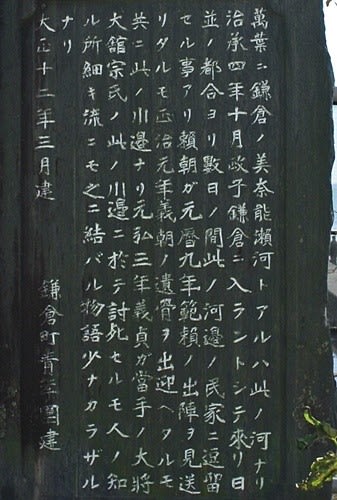 萬葉ニ鎌倉ノ美奈能瀬河トアルハ此ノ河ナリ
治承四年十月政子鎌倉ニ入ラントシテ來リ日
並ノ都合ヨリ數日ノ間此ノ河邊ノ民家ニ逗留
セル事アリ頼朝ガ元暦元年範頼ノ出陣ヲ見送
リタルモ正治元年義朝ノ遺骨ヲ出迎ヘタルモ
共ニ此ノ川邊ナリ元弘三年義貞ガ當手ノ大將
大舘宗氏ノ此ノ川邊ニ於テ討死セルモ人ノ知
ル所細キ流ニモ之ニ結バル物語少ナカラザル
ナリ
大正十二年三月建 鎌倉町青年團建